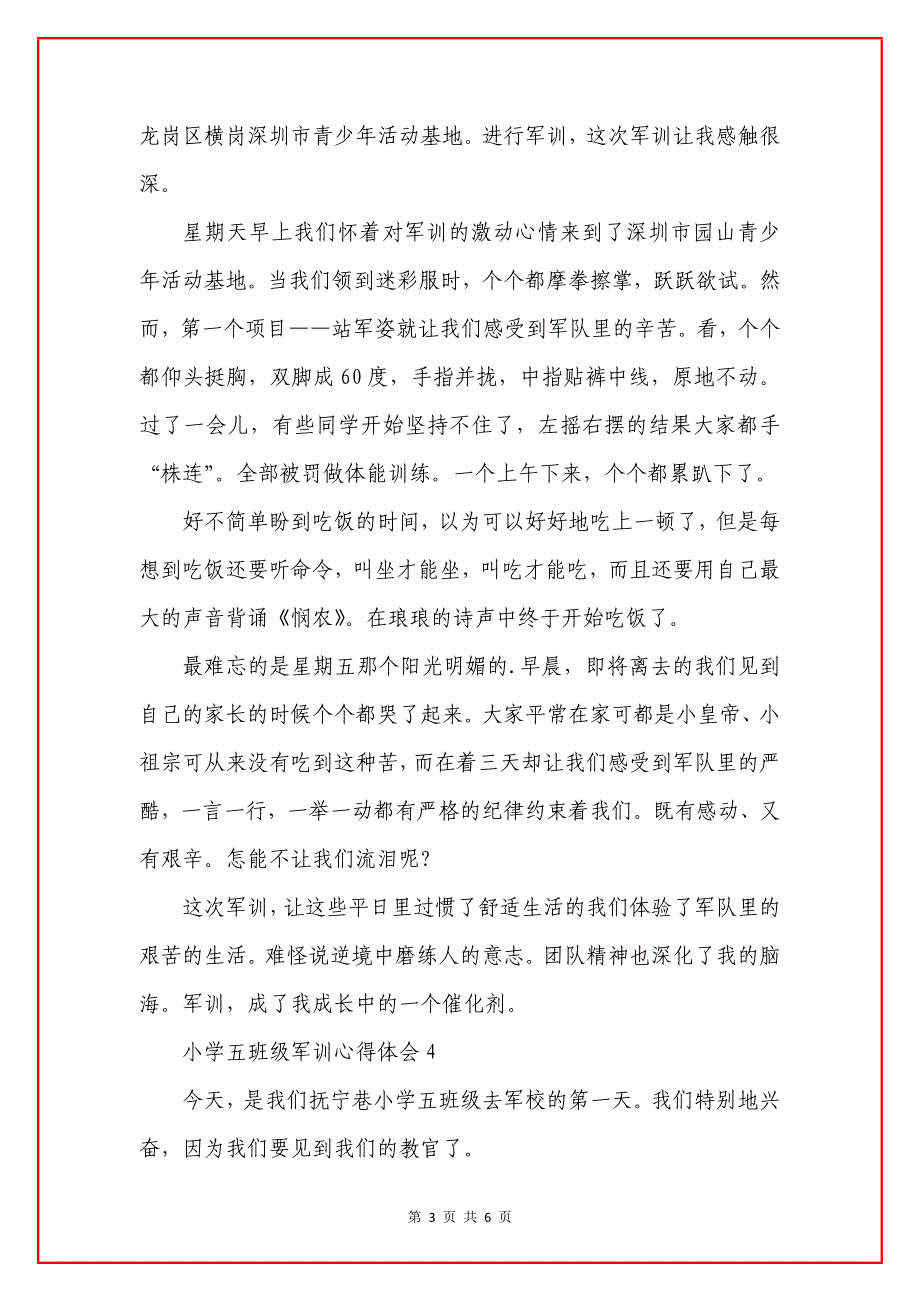 龙岗区横岗深圳市青少年活动基地。进行军训，这次军训让我感触很
深。
星期天早上我们怀着对军训的激动心情来到了深圳市园山青少
年活动基地。当我们领到迷彩服时，个个都摩拳擦掌，跃跃欲试。然
而，第一个项目——站军姿就让我们感受到军队里的辛苦。看，个个
都仰头挺胸，双脚成 60 度，手指并拢，中指贴裤中线，原地不动。
过了一会儿，有些同学开始坚持不住了，左摇右摆的结果大家都手
“株连”。全部被罚做体能训练。一个上午下来，个个都累趴下了。
好不简单盼到吃饭的时间，以为可以好好地吃上一顿了，但是每
想到吃饭还要听命令，叫坐才能坐，叫吃才能吃，而且还要用自己最
大的声音背诵《悯农》。在琅琅的诗声中终于开始吃饭了。
最难忘的是星期五那个阳光明媚的.早晨，即将离去的我们见到
自己的家长的时候个个都哭了起来。大家平常在家可都是小皇帝、小
祖宗可从来没有吃到这种苦，而在着三天却让我们感受到军队里的严
酷，一言一行，一举一动都有严格的纪律约束着我们。既有感动、又
有艰辛。怎能不让我们流泪呢？
这次军训，让这些平日里过惯了舒适生活的我们体验了军队里的
艰苦的生活。难怪说逆境中磨练人的意志。团队精神也深化了我的脑
海。军训，成了我成长中的一个催化剂。
小学五班级军训心得体会 4
今天，是我们抚宁巷小学五班级去军校的第一天。我们特别地兴
奋，因为我们要见到我们的教官了。
第 3 页 共 6 页